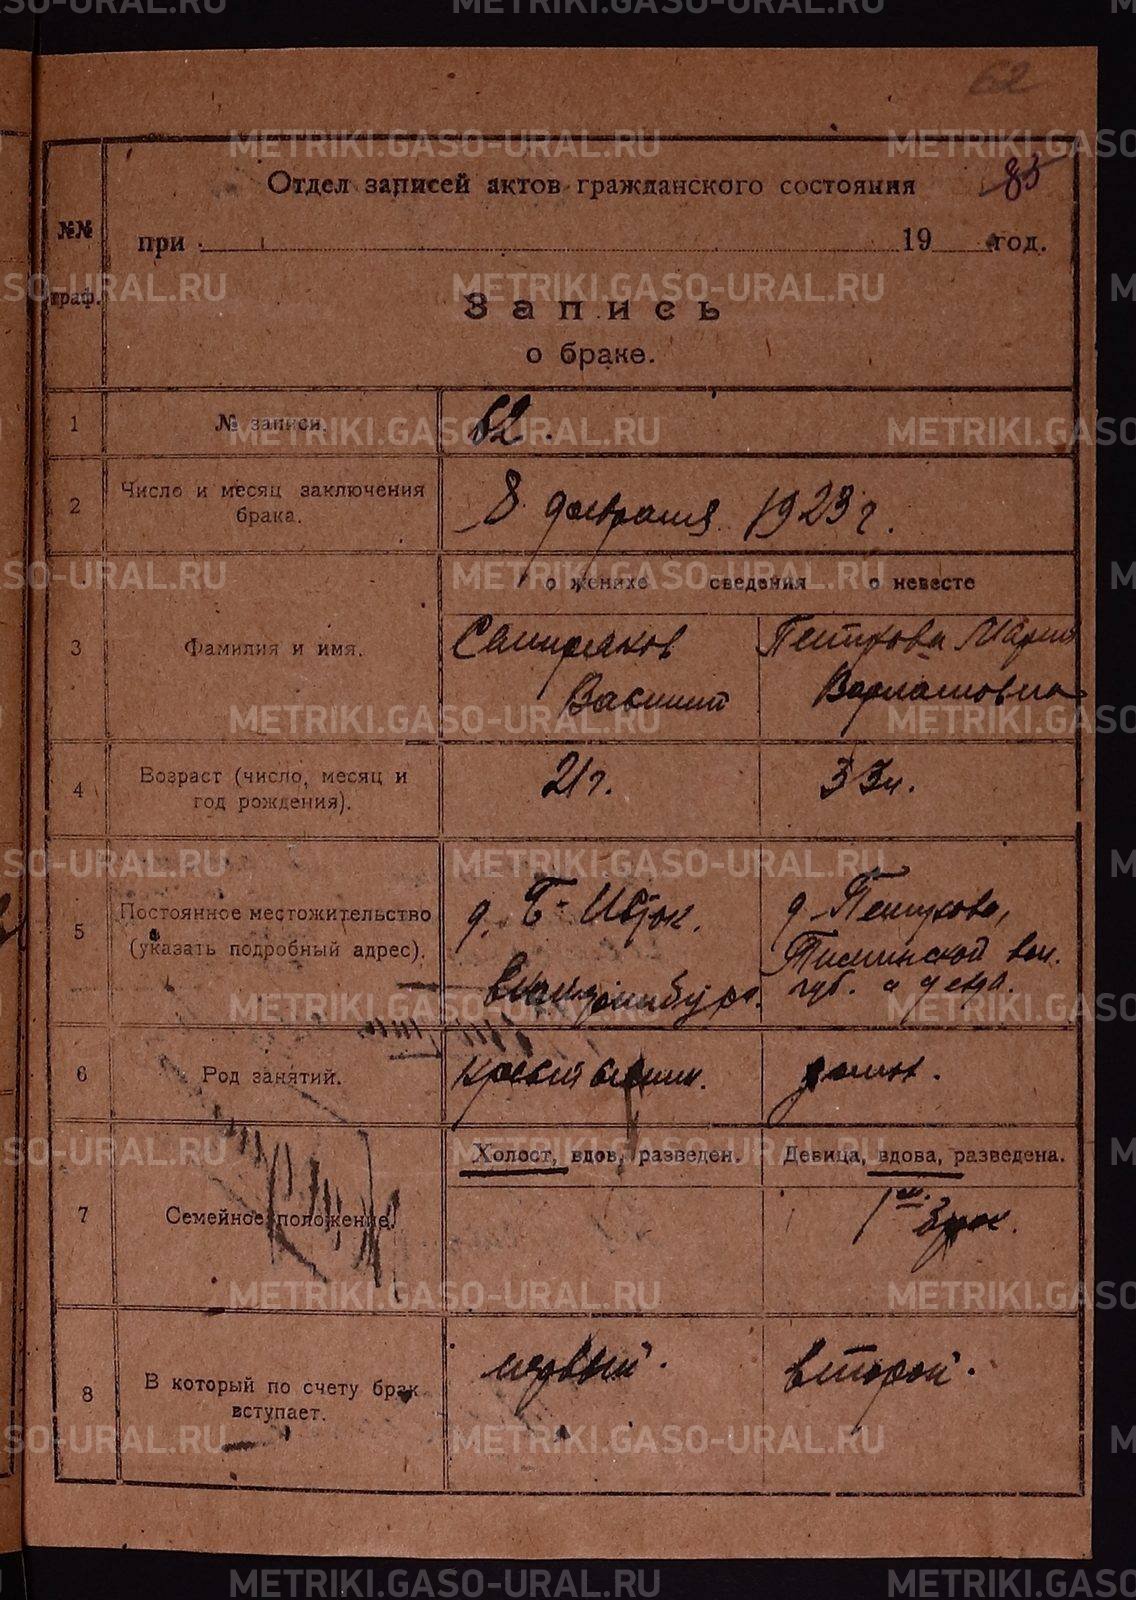 62
Отдел записей актов гражданского состояния
85
№№ граф.
при 19 год.
Запись
о браке.
1 № записи. 62.
2 Число и месяц заключения брака. 8 февраля 1923 г.
о женихе сведения о невесте
3 Фамилия и имя.
Василий
Петухова Мария
Варламовна
4 Возраст (число, месяц и год рождения). 21 г. 33 л.
5 Постоянное местожительство (указать подробный адрес).
д. Б-
д. Петухова,
вол.
губ. и уезда.
6 Род занятий.
7 Семейное положение.
Холост, вдов, разведен. Девица, вдова, разведена.
8 В который по счету брак вступает. первый. второй.
METRIKI.GASO-URAL.RU